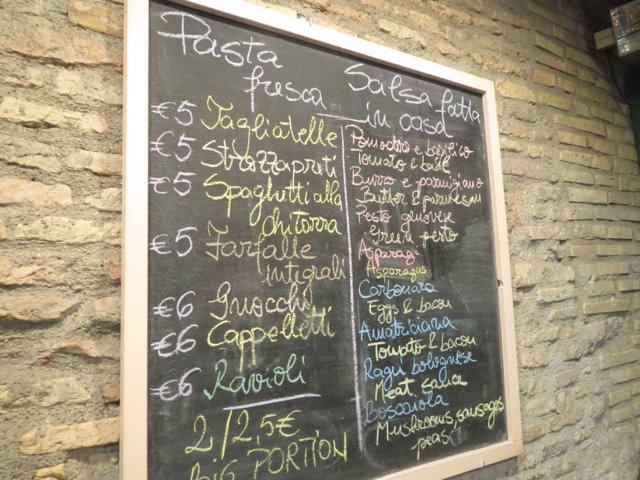 Pasta
fresca
€5 Tagliatelle
€5 Strozzapreti
€5 Spaghetti alla
chitarra
€5 Farfalle
integrali
€6 Gnocchi
€6 Cappelletti
€6 Ravioli
2/2,5€
big PORTION
Salsa fatta
in casa
Pomodoro e basilico
Tomato & basil
Burro e parmigiano
Butter & parmesan
Pesto genovese
Green pesto
Asparagi
Asparagus
Carbonara
Eggs & bacon
Amatriciana
Tomato & bacon
Ragù bolognese
Meat sauce
Boscaiola
Mushrooms, sausages
peas